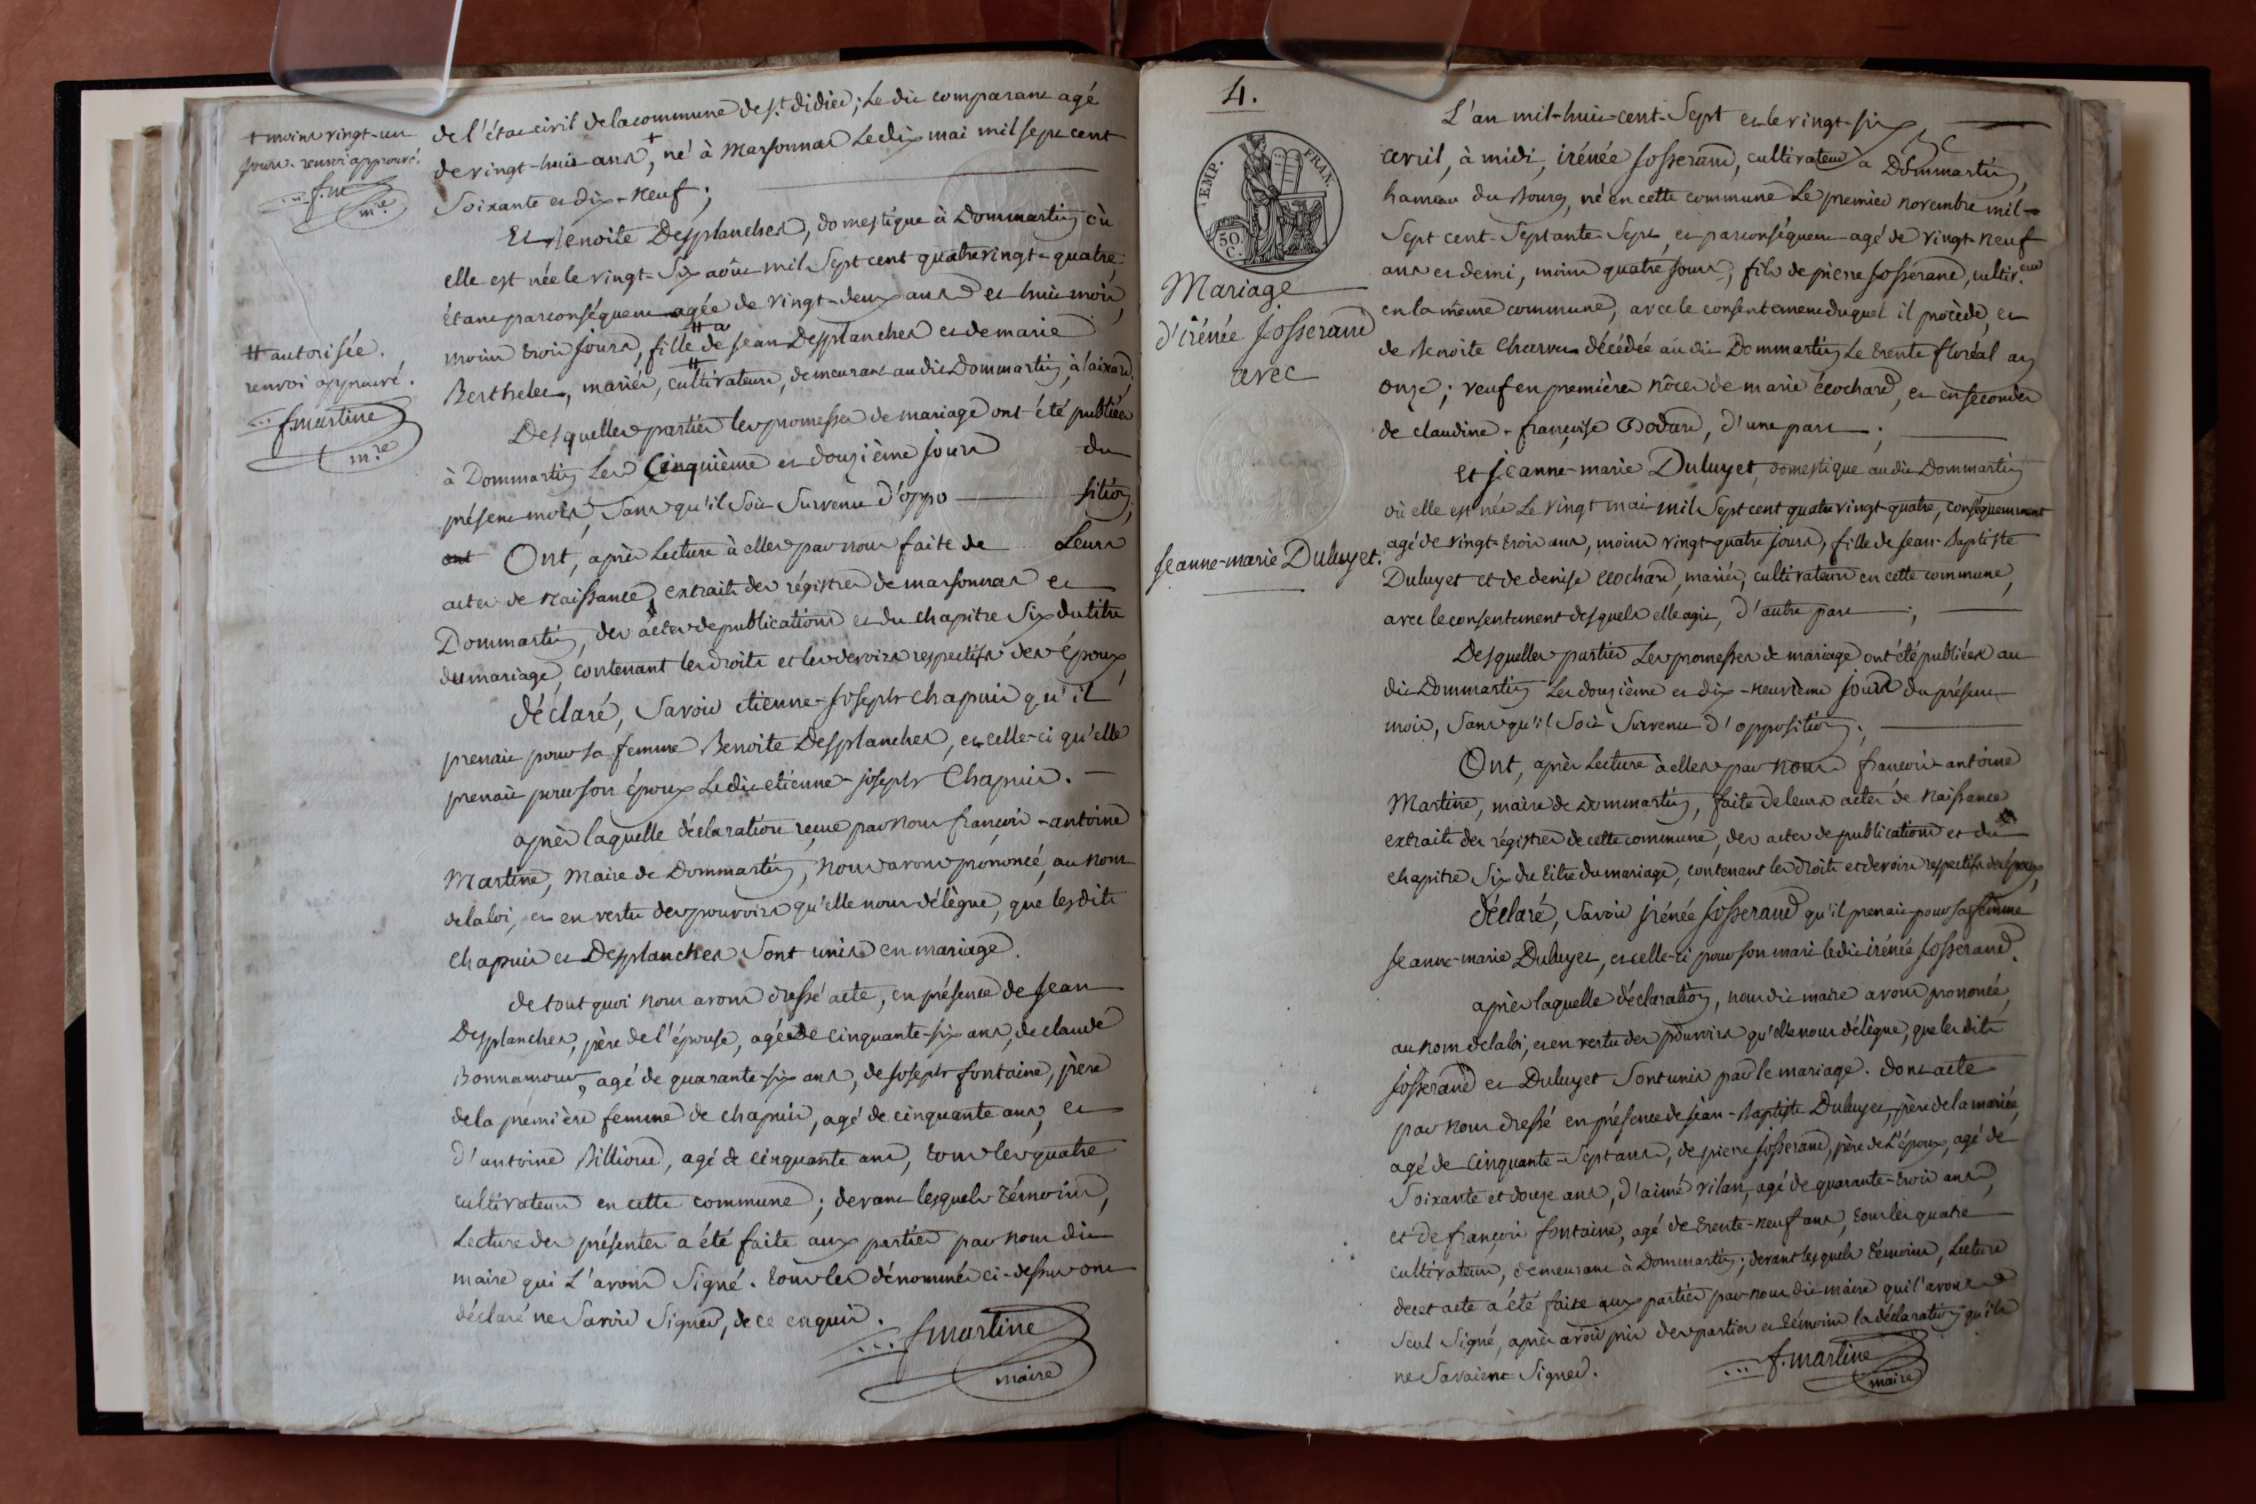 + moins vingt-un
jours. renvoi approuvé.
f.m
m.e
de l'état civil de la commune de s.t didier; Le dit comparant agé
de vingt-huit ans +, né à Marsonnas Le dix mai mil sept cent
soixante et dix-neuf;
Et Benoite Desplanches, domestique à Dommartin où
elle est née le vingt-six août mil sept cent quatrevingt-quatre.
étant parconséquent agée de vingt-deux ans et huit mois,
moins trois jours, fille de jean Desplanches et de marie
# autorisée.
renvoi approuvé.
f.martine
m.re
Berthelet, mariés, cultivateurs, demeurant au dit Dommartin, à
Desquelles parties les promesses de mariage ont été publiées
à Dommartin Les Cinquième et douzième jours du
présent mois, Sans qu'il Soit Survenu d'oppo sition,
ont Ont, après Lecture à elles par nous faite de Leurs
actes de naissance, extraits des régistres de marsonnas et
Dommartin, des actes de publications et du chapitre Six du titre
du mariage, contenant les droits et les devoirs respectifs des époux,
déclaré, Savoir etienne-joseph chapuis qu'il
prenait pour sa femme Benoite Desplanches, et celle-ci qu'elle
prenait pour son époux Le dit etienne-joseph Chapuis.
après laquelle déclaration reçue par nous françois-antoine
Martine, Maire de Dommartin, Nous avons prononcé, au nom
de la loi, et en vertu des pouvoirs qu'elle nous délègue, que les dits
Chapuis et Desplanches Sont unis en mariage.
de tout quoi nous avons dressé acte, en présence de jean
Desplanches, père de l'épouse, agé de cinquante-six ans, de claude
Bonnamour, agé de quarante-six ans, de joseph fontaine, père
de la première femme de chapuis, agé de cinquante ans, et
d'antoine Billioud, agé de cinquante ans, tous les quatre
cultivateurs en cette commune; devant lesquels témoins,
Lecture des présentes a été faite aux parties par nous dit
maire qui L'avons Signé. tous les dénommés ci-dessus ont
déclaré ne Savoir Signer, de ce enquis.
f.martine
maire
4.
EMP. FRAN.
50 C.
Mariage
d'irénée josserand
avec
jeanne-marie Duluyet.
L'an mil-huit-cent-Sept et le vingt-six
avril, à midi, irénée josserand, cultivateur à Dommartin,
hameau du Bourg, né en cette commune Le premier novembre mil-
Sept cent-Septante-Sept, et parconséquent agé de vingt-neuf
ans et demi, moins quatre jours, fils de pierre josserand, cultiv.eur
en la même commune, avec le consentement duquel il procède, et
de Benoite Charvet décédée au dit Dommartin Le trente floréal an
onze; veuf en premières nôces de marie écochard, et en secondes
de claudine-françoise Bodard, d'une part;
et jeanne-marie Duluyet, domestique au dit Dommartin
où elle est née Le vingt mai mil Sept cent quatre vingt-quatre, conséquemment
agé de vingt-trois ans, moins vingt-quatre jours, fille de jean-Baptiste
Duluyet et de denise ecochard, mariés, cultivateurs en cette commune,
avec le consentement desquels elle agit, d'autre part;
Desquelles parties Les promesses de mariage ont été publiées au
dit Dommartin Les douzième et dix-neuvième jours du présent
mois, Sans qu'il Soit Survenu d'opposition;
Ont, après Lecture à elles par nous françois-antoine
Martine, maire de Dommartin, faite de leurs actes de naissance
extraits des régistres de cette commune, des actes de publications et du
chapitre Six du titre du mariage, contenant les droits et devoirs respectifs des époux,
déclaré, Savoir irénée josserand qu'il prenait pour sa femme
jeanne-marie Duluyet, et celle-ci pour son mari le dit irénée josserand.
après laquelle déclaration, nous dit maire avons prononcé,
au nom de la loi, et en vertu des pouvoirs qu'elle nous délègue, que les dits
josserand et Duluyet Sont unis par le mariage. dont acte
par nous dressé en présence de jean-Baptiste Duluyet, père de la mariée,
agé de cinquante-Sept ans, de pierre josserand, père de L'époux, agé de
Soixante et douze ans, d'aimé vilan, agé de quarante-trois ans,
et de françois fontaine, agé de trente-neuf ans, tous les quatre
cultivateurs, demeurant à Dommartin; devant lesquels témoins, Lecture
de cet acte a été faite aux parties par nous dit maire qui l'avons
Seul Signé, après avoir pris des parties et témoins la déclaration qu'ils
ne Savaient Signer.
f.martine
maire